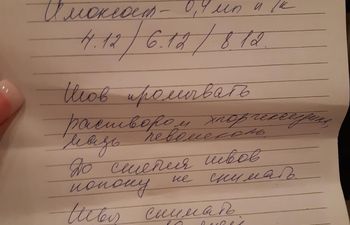 Амоксост - 0,4 мл п/к
4.12 / 6.12 / 8.12.
Шов промывать
раствором хлоргексидина,
мазь левомеколь
До снятия швов
попону не снимать
Швы снимать